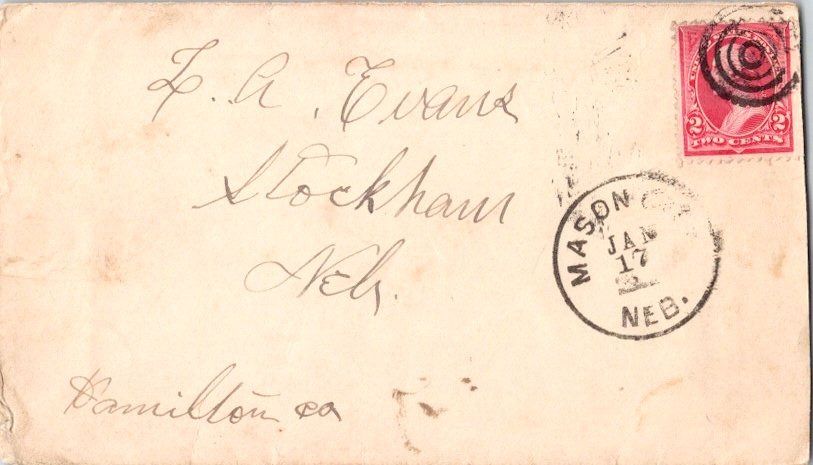 L. A. Evans
Stockham
Neb.
Hamilton co
MASON
JAN
17
NEB.
2 2
TWO CENTS